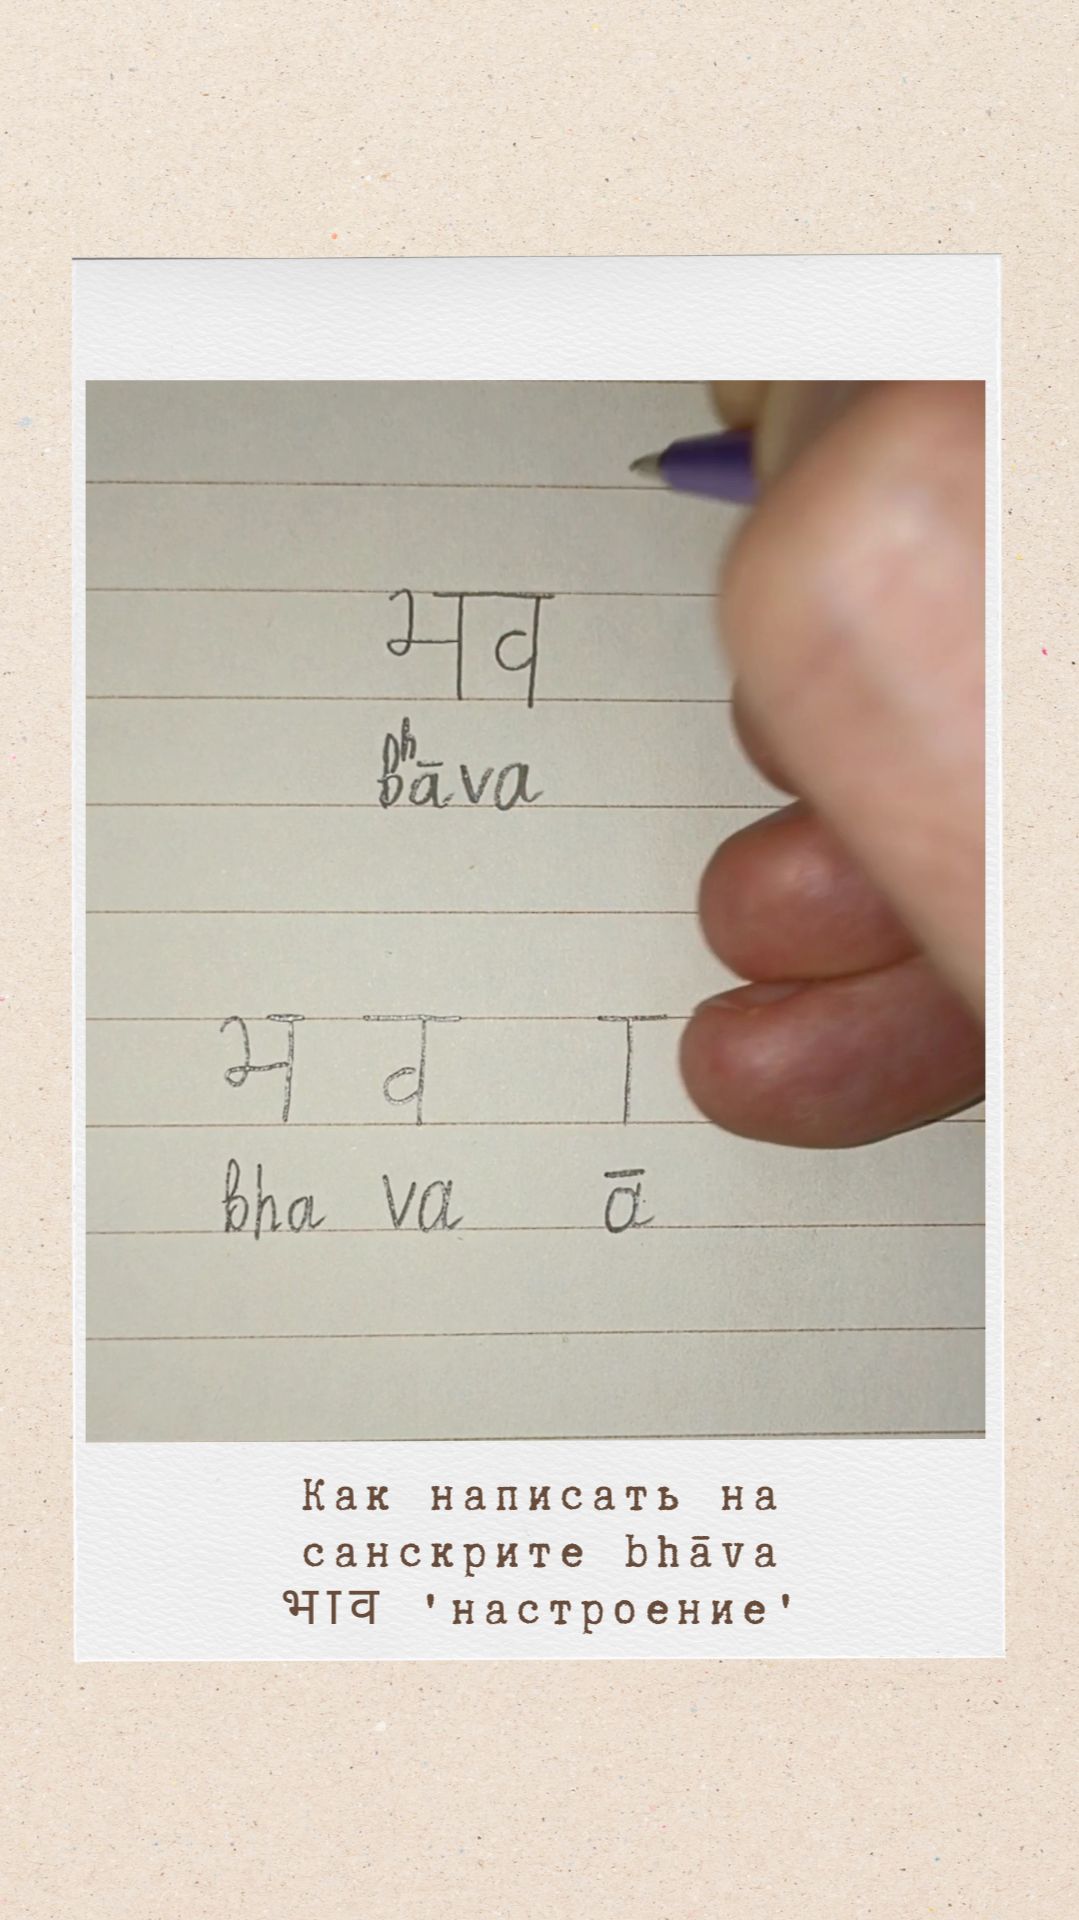 भव
bhāva
भ व ा
bha va ā
Как написать на
санскрите bhāva
भाव 'настроение'